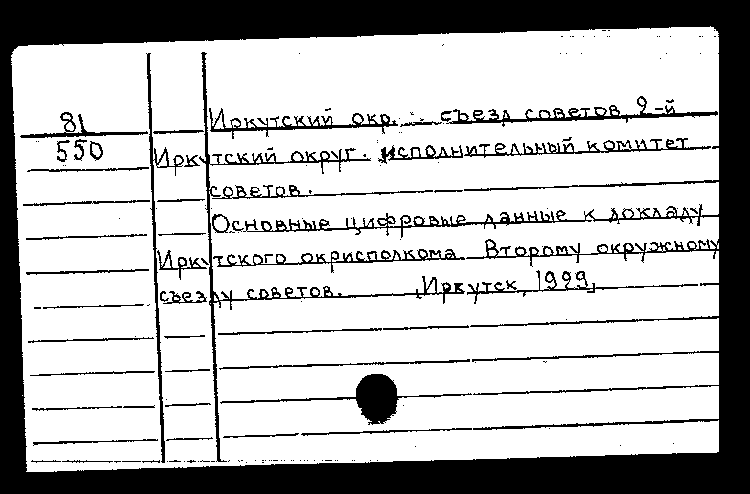 81
550
Иркутский окр. съезд советов, 2-й
Иркутский округ. исполнительный комитет
советов.
Основные цифровые данные к докладу
Иркутского окрисполкома Второму окружному
съезду советов. Иркутск, 1929,